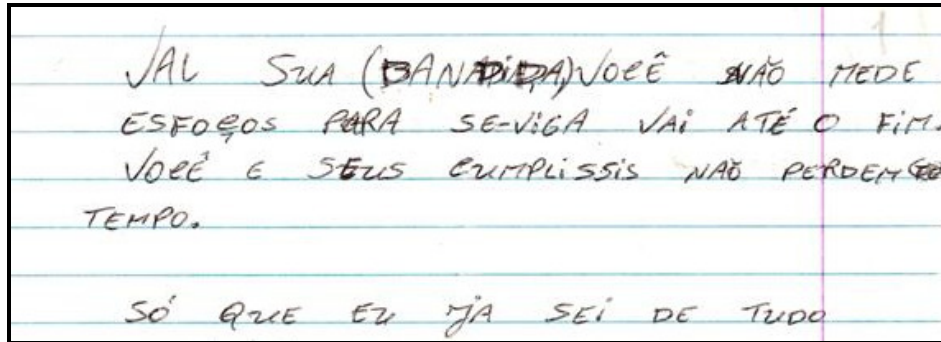 VAL SUA (BANDIDA) VOCÊ NÃO MEDE
ESFOÇOS PARA SE-VIGA VAI ATÉ O FIM.
VOCÊ E SEUS CUMPLISSIS NÃO PERDEM
TEMPO.
SÓ QUE EU JÁ SEI DE TUDO